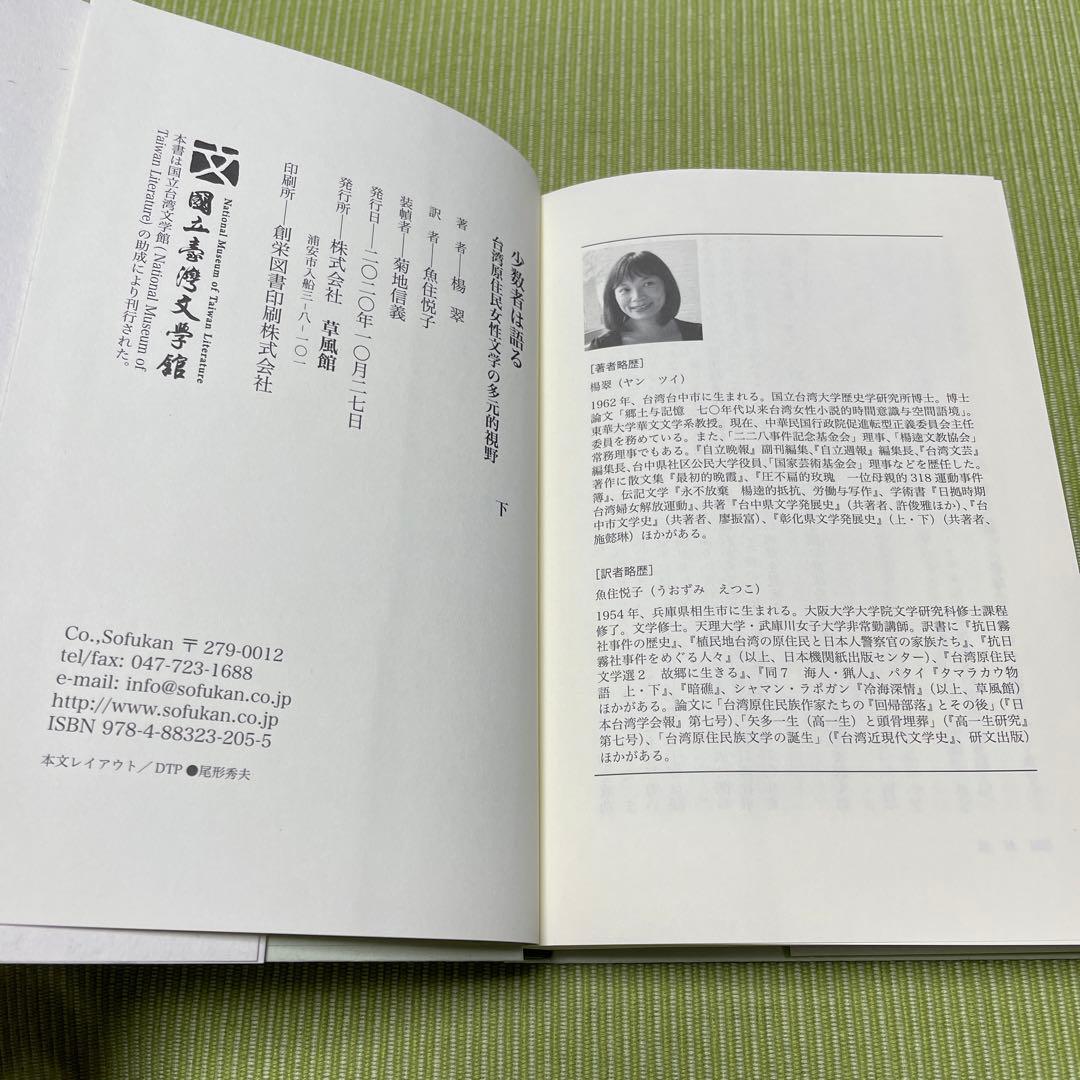 少数者は語る
台湾原住民女性文学の多元的視野 下
著 者―楊 翠
訳 者―魚住悦子
装幀者―菊地信義
発行日―二〇二〇年一〇月二七日
発行所―株式会社 草風館
浦安市入船三-八-一〇一
印刷所―創栄図書印刷株式会社
文
National Museum of Taiwan Literature
國立臺灣文學館
本書は国立台湾文学館(National Museum of
Taiwan Literature)の助成により刊行された。
Co.,Sofukan 〒279-0012
tel/fax: 047-723-1688
e-mail: info@sofukan.co.jp
http://www.sofukan.co.jp
ISBN 978-4-88323-205-5
本文レイアウト/DTP●尾形秀夫
[著者略歴]
楊翠(ヤン ツイ)
1962年、台湾台中市に生まれる。国立台湾大学歴史学研究所博士。博士
論文「郷土与記憶 七〇年代以来台湾女性小説的時間意識与空間語境」。
東華大学華文文学系教授。現在、中華民国行政院促進転型正義委員会主任
委員を務めている。また、「二二八事件記念基金会」理事、「楊逵文教協会」
常務理事でもある。『自立晩報』副刊編集、『自立週報』編集長、『台湾文芸』
編集長、台中県社区公民大学役員、「国家芸術基金会」理事などを歴任した。
著作に散文集『最初的晩霞』、『圧不扁的玫瑰 一位母親的318運動事件
簿』、伝記文学『永不放棄 楊逵的抵抗、労働与写作』、学術書『日拠時期
台湾婦女解放運動』、共著『台中県文学発展史』(共著者、許俊雅ほか)、『台
中市文学史』(共著者、廖振富)、『彰化県文学発展史』(上・下)(共著者、
施懿琳)ほかがある。
[訳者略歴]
魚住悦子(うおずみ えつこ)
1954年、兵庫県相生市に生まれる。大阪大学大学院文学研究科修士課程
修了。文学修士。天理大学・武庫川女子大学非常勤講師。訳書に『抗日霧
社事件の歴史』、『植民地台湾の原住民と日本人警察官の家族たち』、『抗日
霧社事件をめぐる人々』(以上、日本機関紙出版センター)、『台湾原住民
文学選2 故郷に生きる』、『同7 海人・猟人』、パタイ『タマラカウ物
語 上・下』、『暗礁』、シャマン・ラポガン『冷海深情』(以上、草風館)
ほかがある。論文に「台湾原住民族作家たちの『回帰部落』とその後」(『日
本台湾学会報』第七号)、「矢多一生(高一生)と頭骨埋葬」(『高一生研究』
第七号)、「台湾原住民族文学の誕生」(『台湾近現代文学史』、研文出版)
ほかがある。